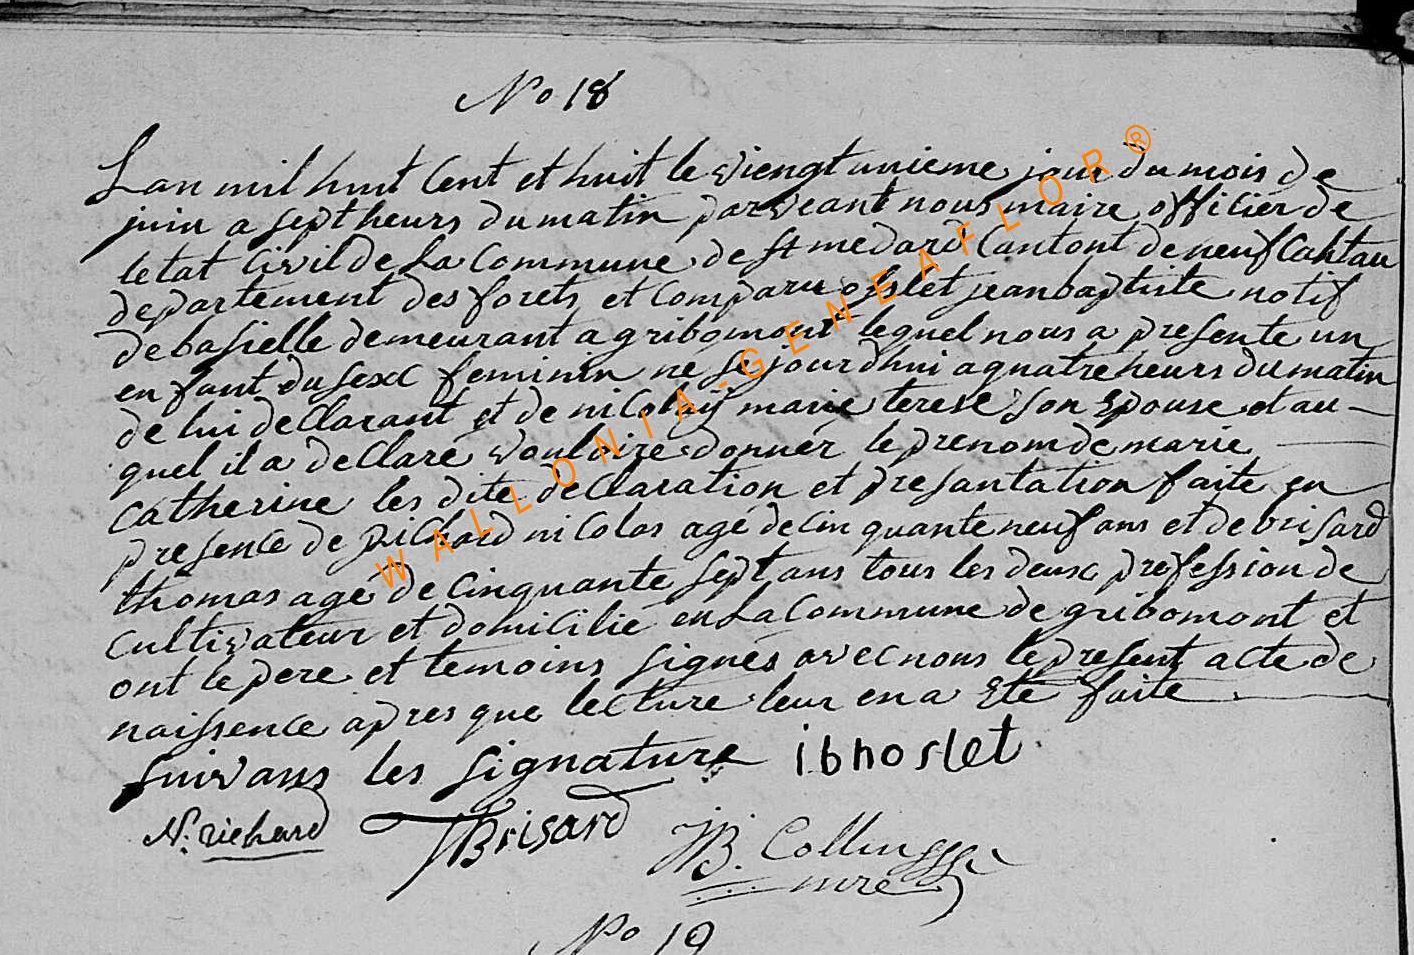 No 18
Lan mil huit Cent et huit le viengt unieme jour du mois de
juin a sept heurs du matin parveant nous maire officier de
letat Civil de La Commune de st medard Cantont de neufcahtau
departement des forets et comparu oslet jean baptiste notif
de basielle demeurant a gribomont lequel nous a presente un
enfant du sexe feminin ne se jourdhui a quatre heurs du matin
de lui declarant et de nicolay marie terese son Epouse et au
quel il a declaré vouloire donner le prenom de marie
Catherine les dite declaration et presantation faite en
presence de Richard nicolas agé de cinquante neuf ans et de brisard
thomas agé de cinquante sept ans tous les deux profession de
cultivateur et domicilié en La Commune de gribomont et
ont le pere et temoins signés avec nous le present acte de
naissence apres que lecture leur en a Eté faite
suivans les signature ibhoslet
N. richard TBrisard JB. Collin
mre
No 19
WALLONIA-GENEAFLOR®